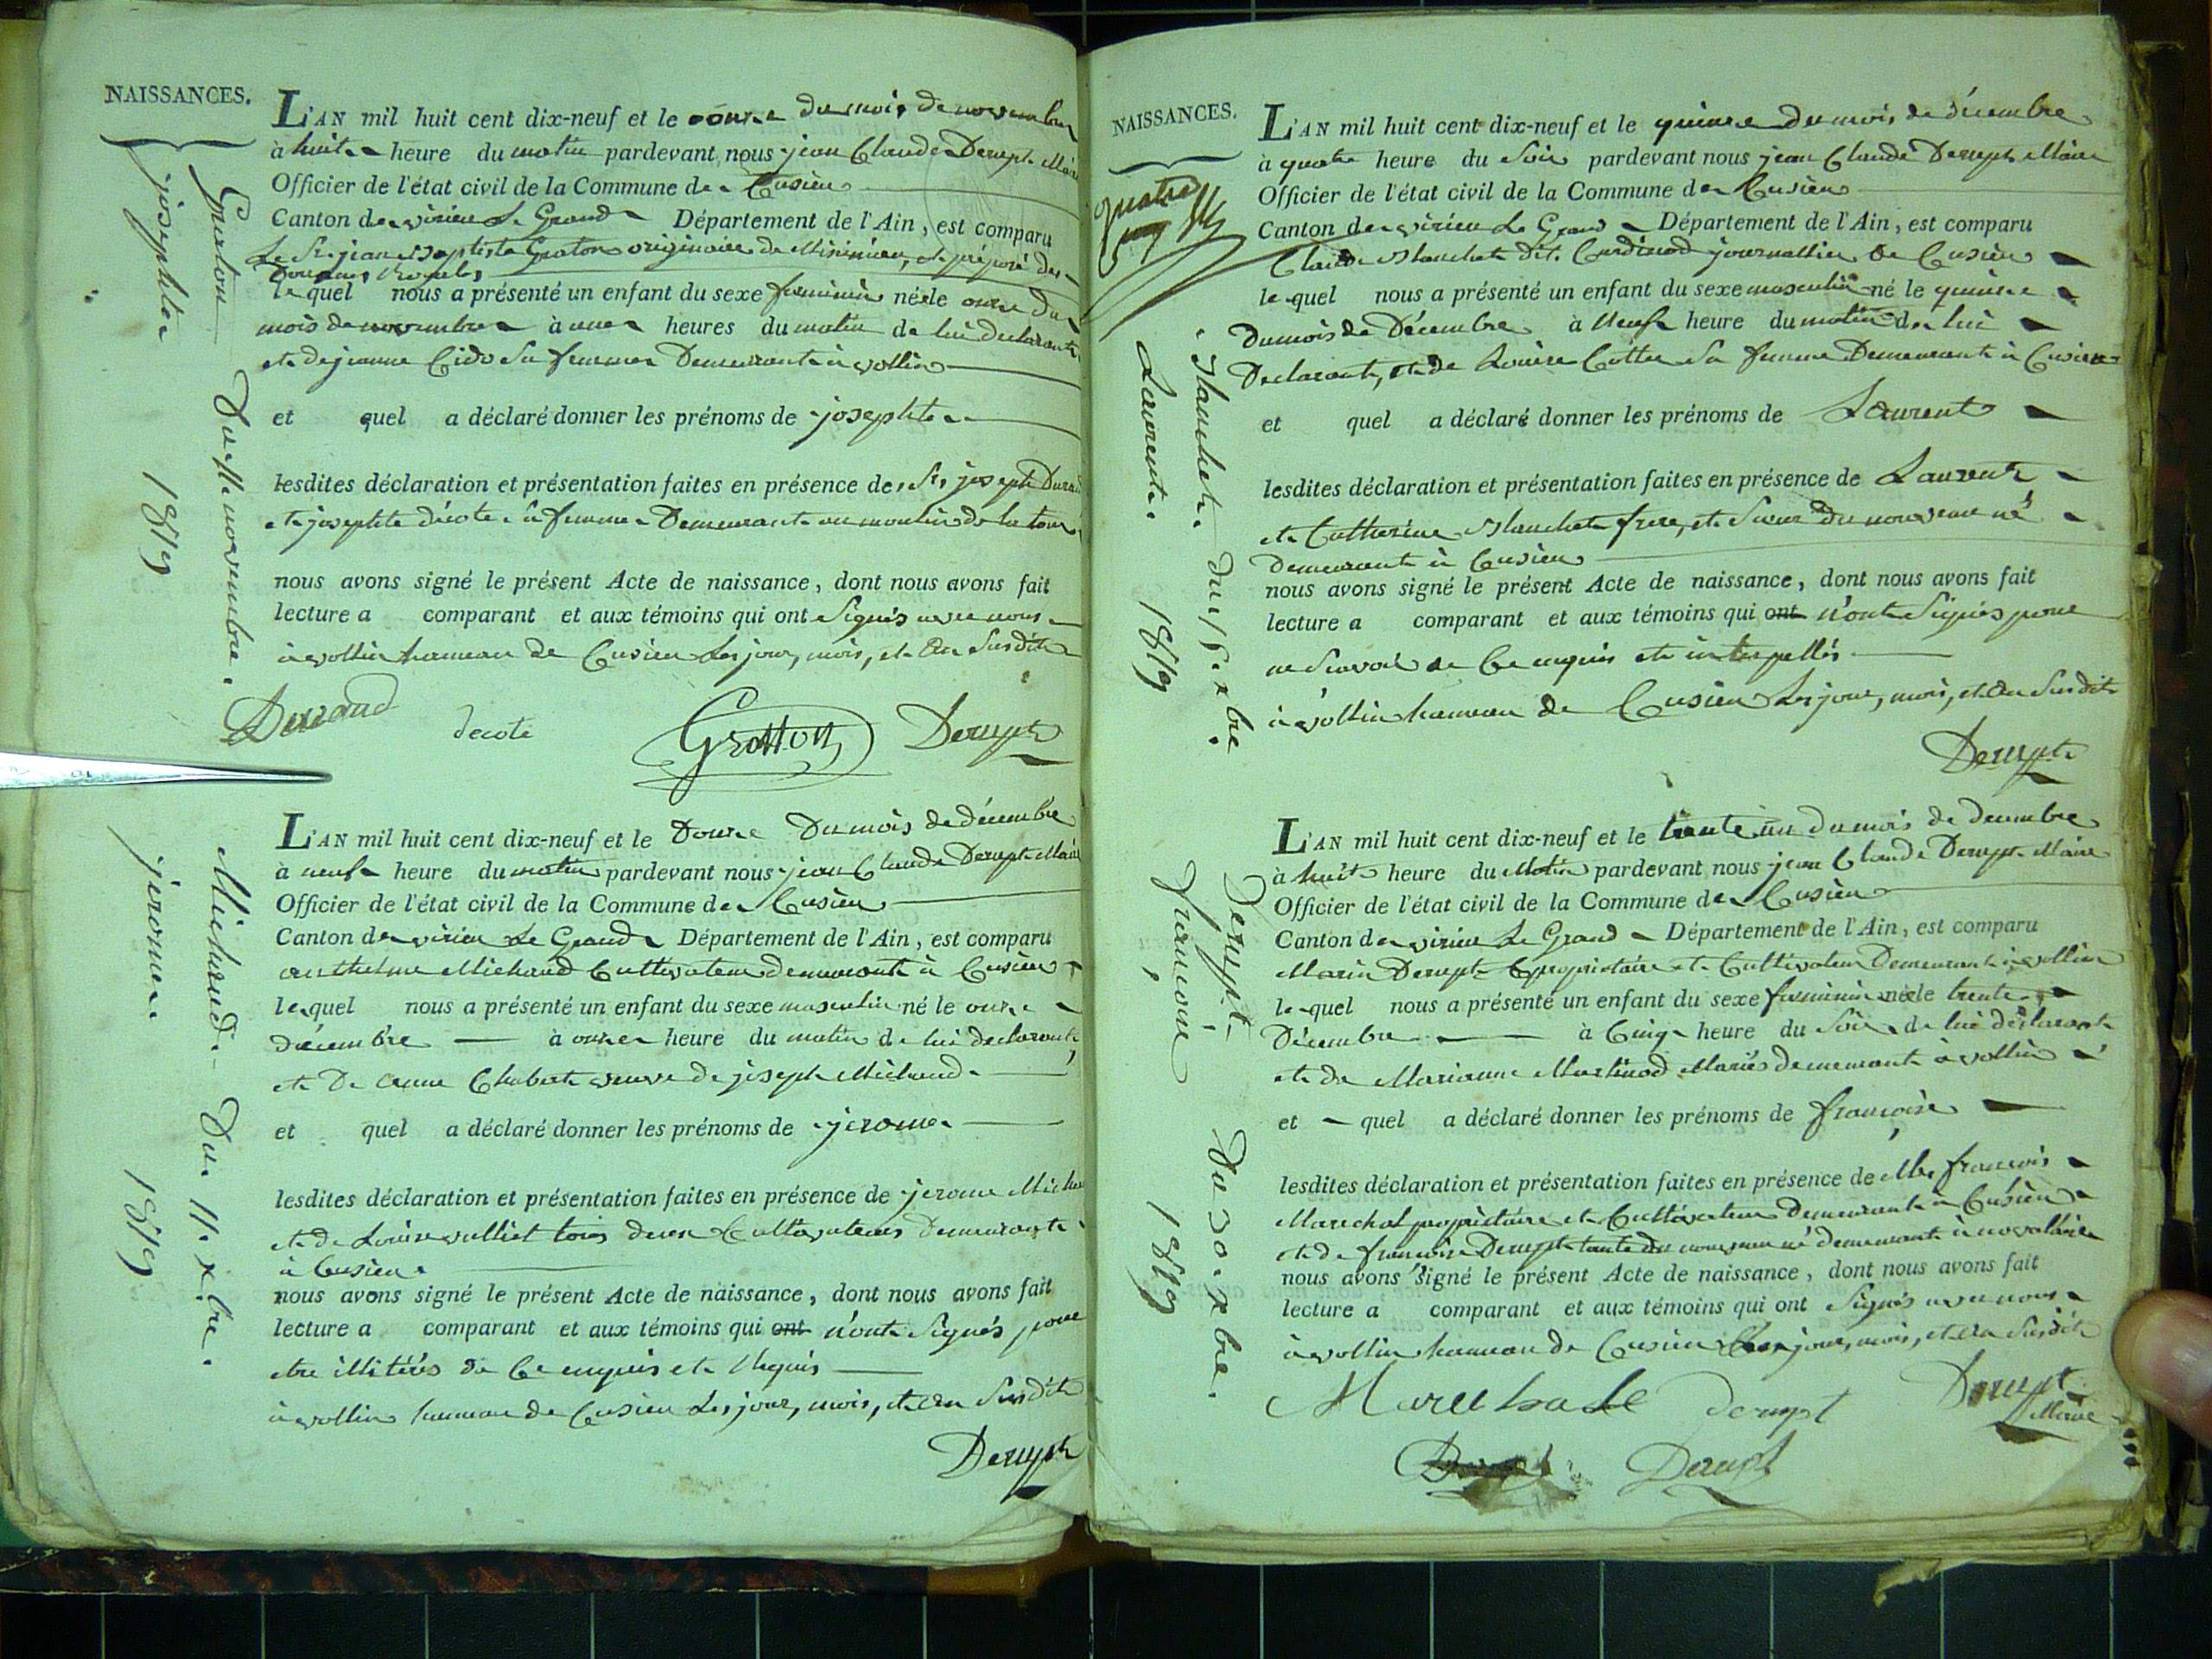 NAISSANCES.
L'AN mil huit cent dix-neuf et le onze du mois de novembre
à huit heure du matin pardevant nous jean Claude Derupt Maire
Officier de l'état civil de la Commune de Cusieu
Canton de virieu Le Grand Département de l'Ain, est comparu
Le Sr. jean Baptiste Graton originaire de et préposé des
Douanes Royales
lequel nous a présenté un enfant du sexe feminin née le onze du
mois de novembre à une heures du matin de lui declarant
et de jeanne Cido sa femme Demeurant à vollin
et quel a déclaré donner les prénoms de josephte
lesdites déclaration et présentation faites en présence de Sr. joseph Durand
et josephte décote sa femme Demeurant au moulin de la tour
nous avons signé le présent Acte de naissance, dont nous avons fait
lecture a comparant et aux témoins qui ont Signés avec nous
à vollin hameau de Cusieu Les jour, mois, et an Susdit
Durand decote Gratton Derupt
Gratton Du 11 novembre.
josephte 1819
L'AN mil huit cent dix-neuf et le Douze Du mois de décembre
à neuf heure du matin pardevant nous jean Claude Derupt Maire
Officier de l'état civil de la Commune de Cusieu
Canton de virieu Le Grand Département de l'Ain, est comparu
anthelme Michaud Cultivateur demeurant à Cusieu
lequel nous a présenté un enfant du sexe masculin né le onze
décembre à onze heure du matin de lui declarant
et De anne Chabert veuve de joseph Michaud
et quel a déclaré donner les prénoms de jerome
lesdites déclaration et présentation faites en présence de jerome Michaud
et de Louise vulliet tous deux Cultivateurs Demeurant
à Cusieu
nous avons signé le présent Acte de naissance, dont nous avons fait
lecture a comparant et aux témoins qui ont n'ont Signés pour
etre illitérés de Ce enquis et Requis
à vollin hameau de Cusieu Les jour, mois, et an Susdit
Derupt
Michaud. Du 11. xbre.
jerome 1819
NAISSANCES.
L'AN mil huit cent dix-neuf et le quinze du mois de décembre
à quatre heure du Soir pardevant nous jean Claude Derupt Maire
Officier de l'état civil de la Commune de Cusieu
Canton de virieu Le Grand Département de l'Ain, est comparu
Claude Blanchet dit Cardinod journallier de Cusieu
lequel nous a présenté un enfant du sexe masculin né le quinze
du mois de Décembre à Neuf heure du matin de lui
Declarant, et de Louise Cottet Sa femme Demeurant à Cusieu
et quel a déclaré donner les prénoms de Laurent
lesdites déclaration et présentation faites en présence de Laurent
et Catherine Blanchet frere, et Sœur du nouveau né
Demeurant à Cusieu
nous avons signé le présent Acte de naissance, dont nous avons fait
lecture a comparant et aux témoins qui ont n'ont Signés pour
ne Savoir de Ce enquis et interpellés
à vollin hameau de Cusieu Les jour, mois, et an Susdit
Derupt
quatre
Blanchet. du 15. xbre
Laurent. 1819
L'AN mil huit cent dix-neuf et le trente un du mois de decembre
à huit heure du Matin pardevant nous jean Claude Derupt Maire
Officier de l'état civil de la Commune de Cusieu
Canton de virieu Le Grand Département de l'Ain, est comparu
Marin Derupt propriétaire et Cultivateur Demeurant à vollin
lequel nous a présenté un enfant du sexe feminin née le trente
Décembre à Cinq heure du Soir de lui déclarant
et de Marianne Martinod Mariés demeurant à vollin
et quel a déclaré donner les prénoms de françoise
lesdites déclaration et présentation faites en présence de Mr. françois
Marechal propriétaire et Cultivateur Demeurant à Cusieu
et de françoise Derupt tante du nouveau né demeurant à
nous avons signé le présent Acte de naissance, dont nous avons fait
lecture a comparant et aux témoins qui ont Signés avec nous
à vollin hameau de Cusieu Les jour, mois, et an Susdit
Marechale derupt Derupt
Maire
Derupt
Derupt Du 30. xbre.
françoise 1819